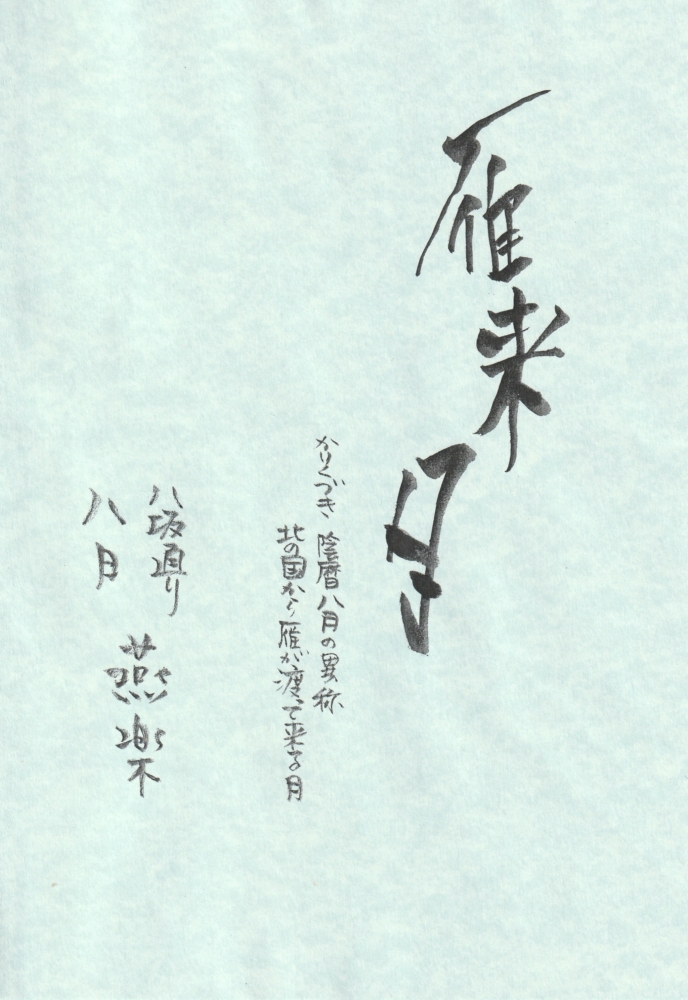 雁来月
かりくづき 陰暦八月の異称
北の国から雁が渡って来る月
八坂通り
八月 燕楽